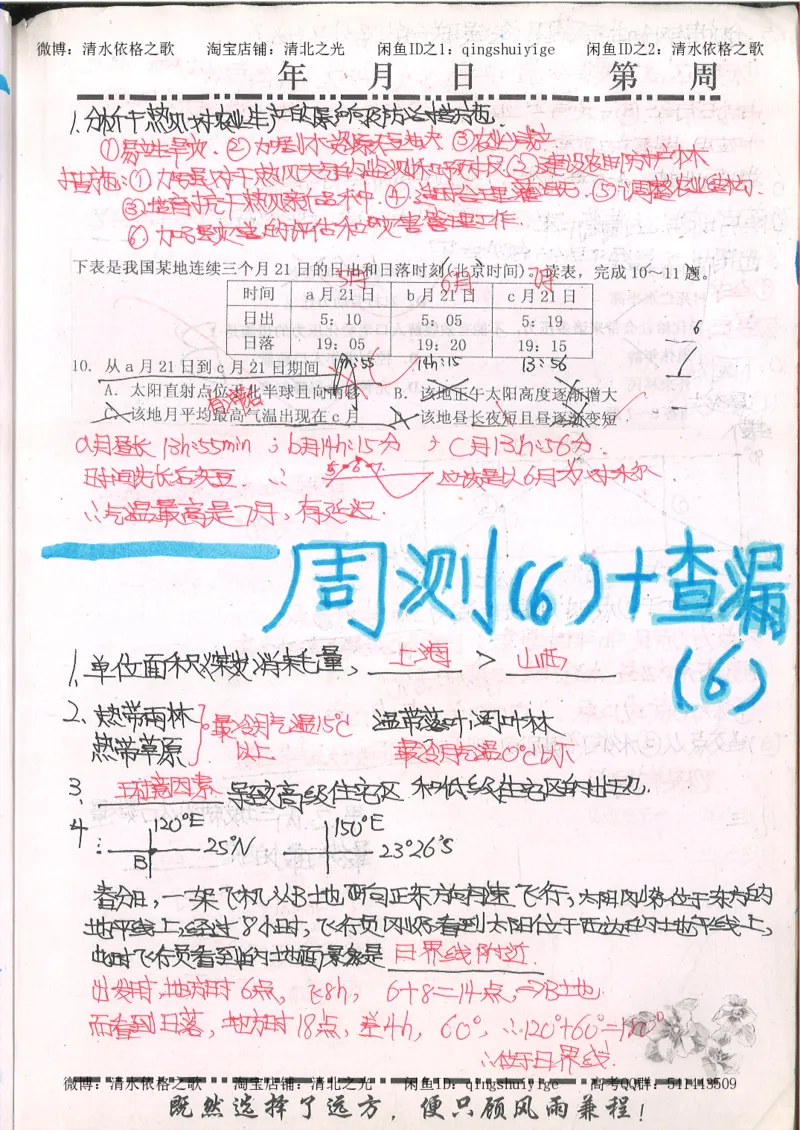 微博：清水依格之歌 淘宝店铺：清北之光 闲鱼ID之1：qingshuiyige 闲鱼ID之2：清水依格之歌
年 月 日 第 周
1.分析干热风对农业生产的影响及防治措施.
①易发生旱灾. ②加剧水资源 ③农业减产
措施：①加强对干热风天气的监测和预报 ②建设农田防护林
③培育抗干热风新品种. ④ 适时合理灌溉. ⑤调整农业结构.
⑥ 加强灾害的评估和灾害管理工作.
下表是我国某地连续三个月 21 日的日出和日落时刻(北京时间)。读表，完成 10～11 题。
5月 6月 7月
时间 a 月 21 日 b 月 21 日 c 月 21 日
日出 5：10 5：05 5：19
日落 19：05 19：20 19：15
10. 从 a 月 21 日到 c 月 21 日期间
13h:55 14h:15 13:56
A．太阳直射点位于北半球且向南移 B．该地正午太阳高度逐渐增大
有滞后
C．该地月平均最高气温出现在 c 月 D．该地昼长夜短且昼逐渐变短
a月昼长 13h:55min ; b月14h:15分 ; C月13h:56分.
时间先长后变短. ∴ 5 6 7 应该是以6月为对称.
∴气温最高是7月，有延迟.
周测(6)+查漏
(6)
1. 单位面积(菜)消耗量, 上海 > 山西
2. 热带雨林 最冷月气温15℃ 温带落叶阔叶林
热带草原 以上 最冷月气温0℃以下
3、环境因素 导致高级住宅区 和低级住宅区的出现.
4 120°E 150°E
B 25°N 23°26′S
春分日，一架飞机从B地向正东方向匀速飞行，太阳刚好位于东方的
地平线上，经过8小时，飞行员刚好看到太阳位于西边的地平线上，
此时飞行员看到的地面景象是 日界线附近.
出发时，地方时6点， 飞8h， 6+8=14点，⇒B地.
而看到日落，地方时18点，差4h，60°，∴120°+60°=180°
∴位于日界线.
微博：清水依格之歌 淘宝店铺：清北之光 闲鱼ID：qingshuiyige 高考QQ群：541443509
既然选择了远方，便只顾风雨兼程！